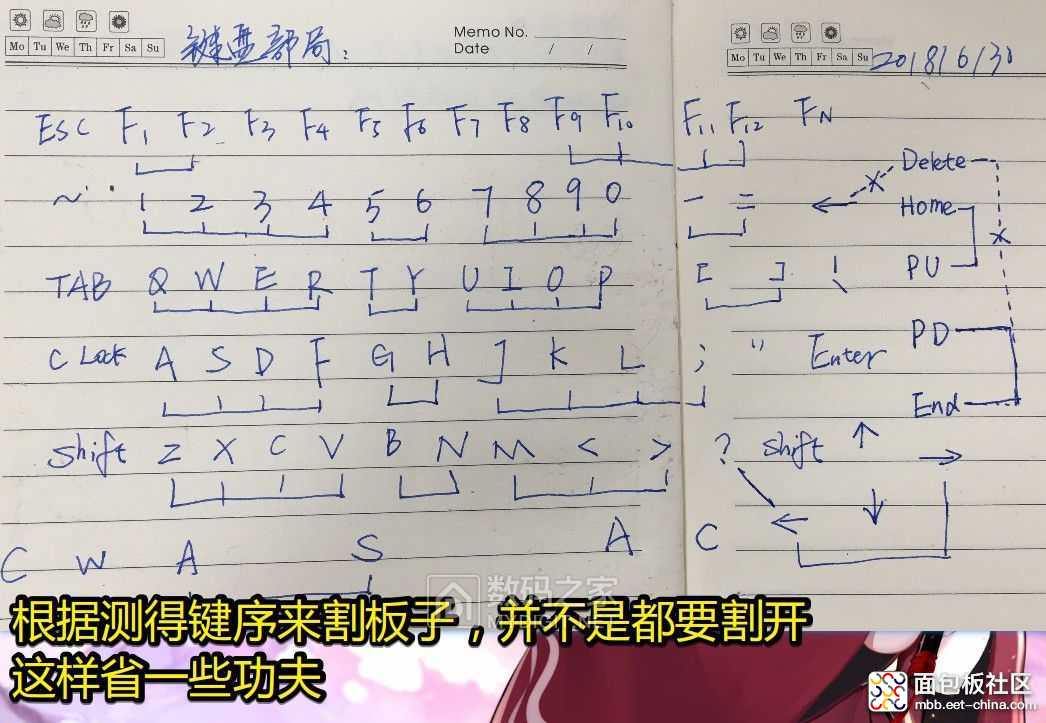 Mo Tu We Th Fr Sa Su 键盘部局: Memo No.
Date / /
Mo Tu We Th Fr Sa Su 2018/6/30
ESC F1 F2 F3 F4 F5 F6 F7 F8 F9 F10 F11 F12 FN
Delete
~ 1 2 3 4 5 6 7 8 9 0 - = ← Home
TAB Q W E R T Y U I O P [ ] ! \ PU
PD
C Lock A S D F G H J K L ; " Enter
End
Shift Z X C V B N M < > ? Shift ↑ →
← ↓
C W A S A C
数码之家
根据测得键序来割板子，并不是都要割开
这样省一些功夫
面包板社区
mbb.eet-china.com